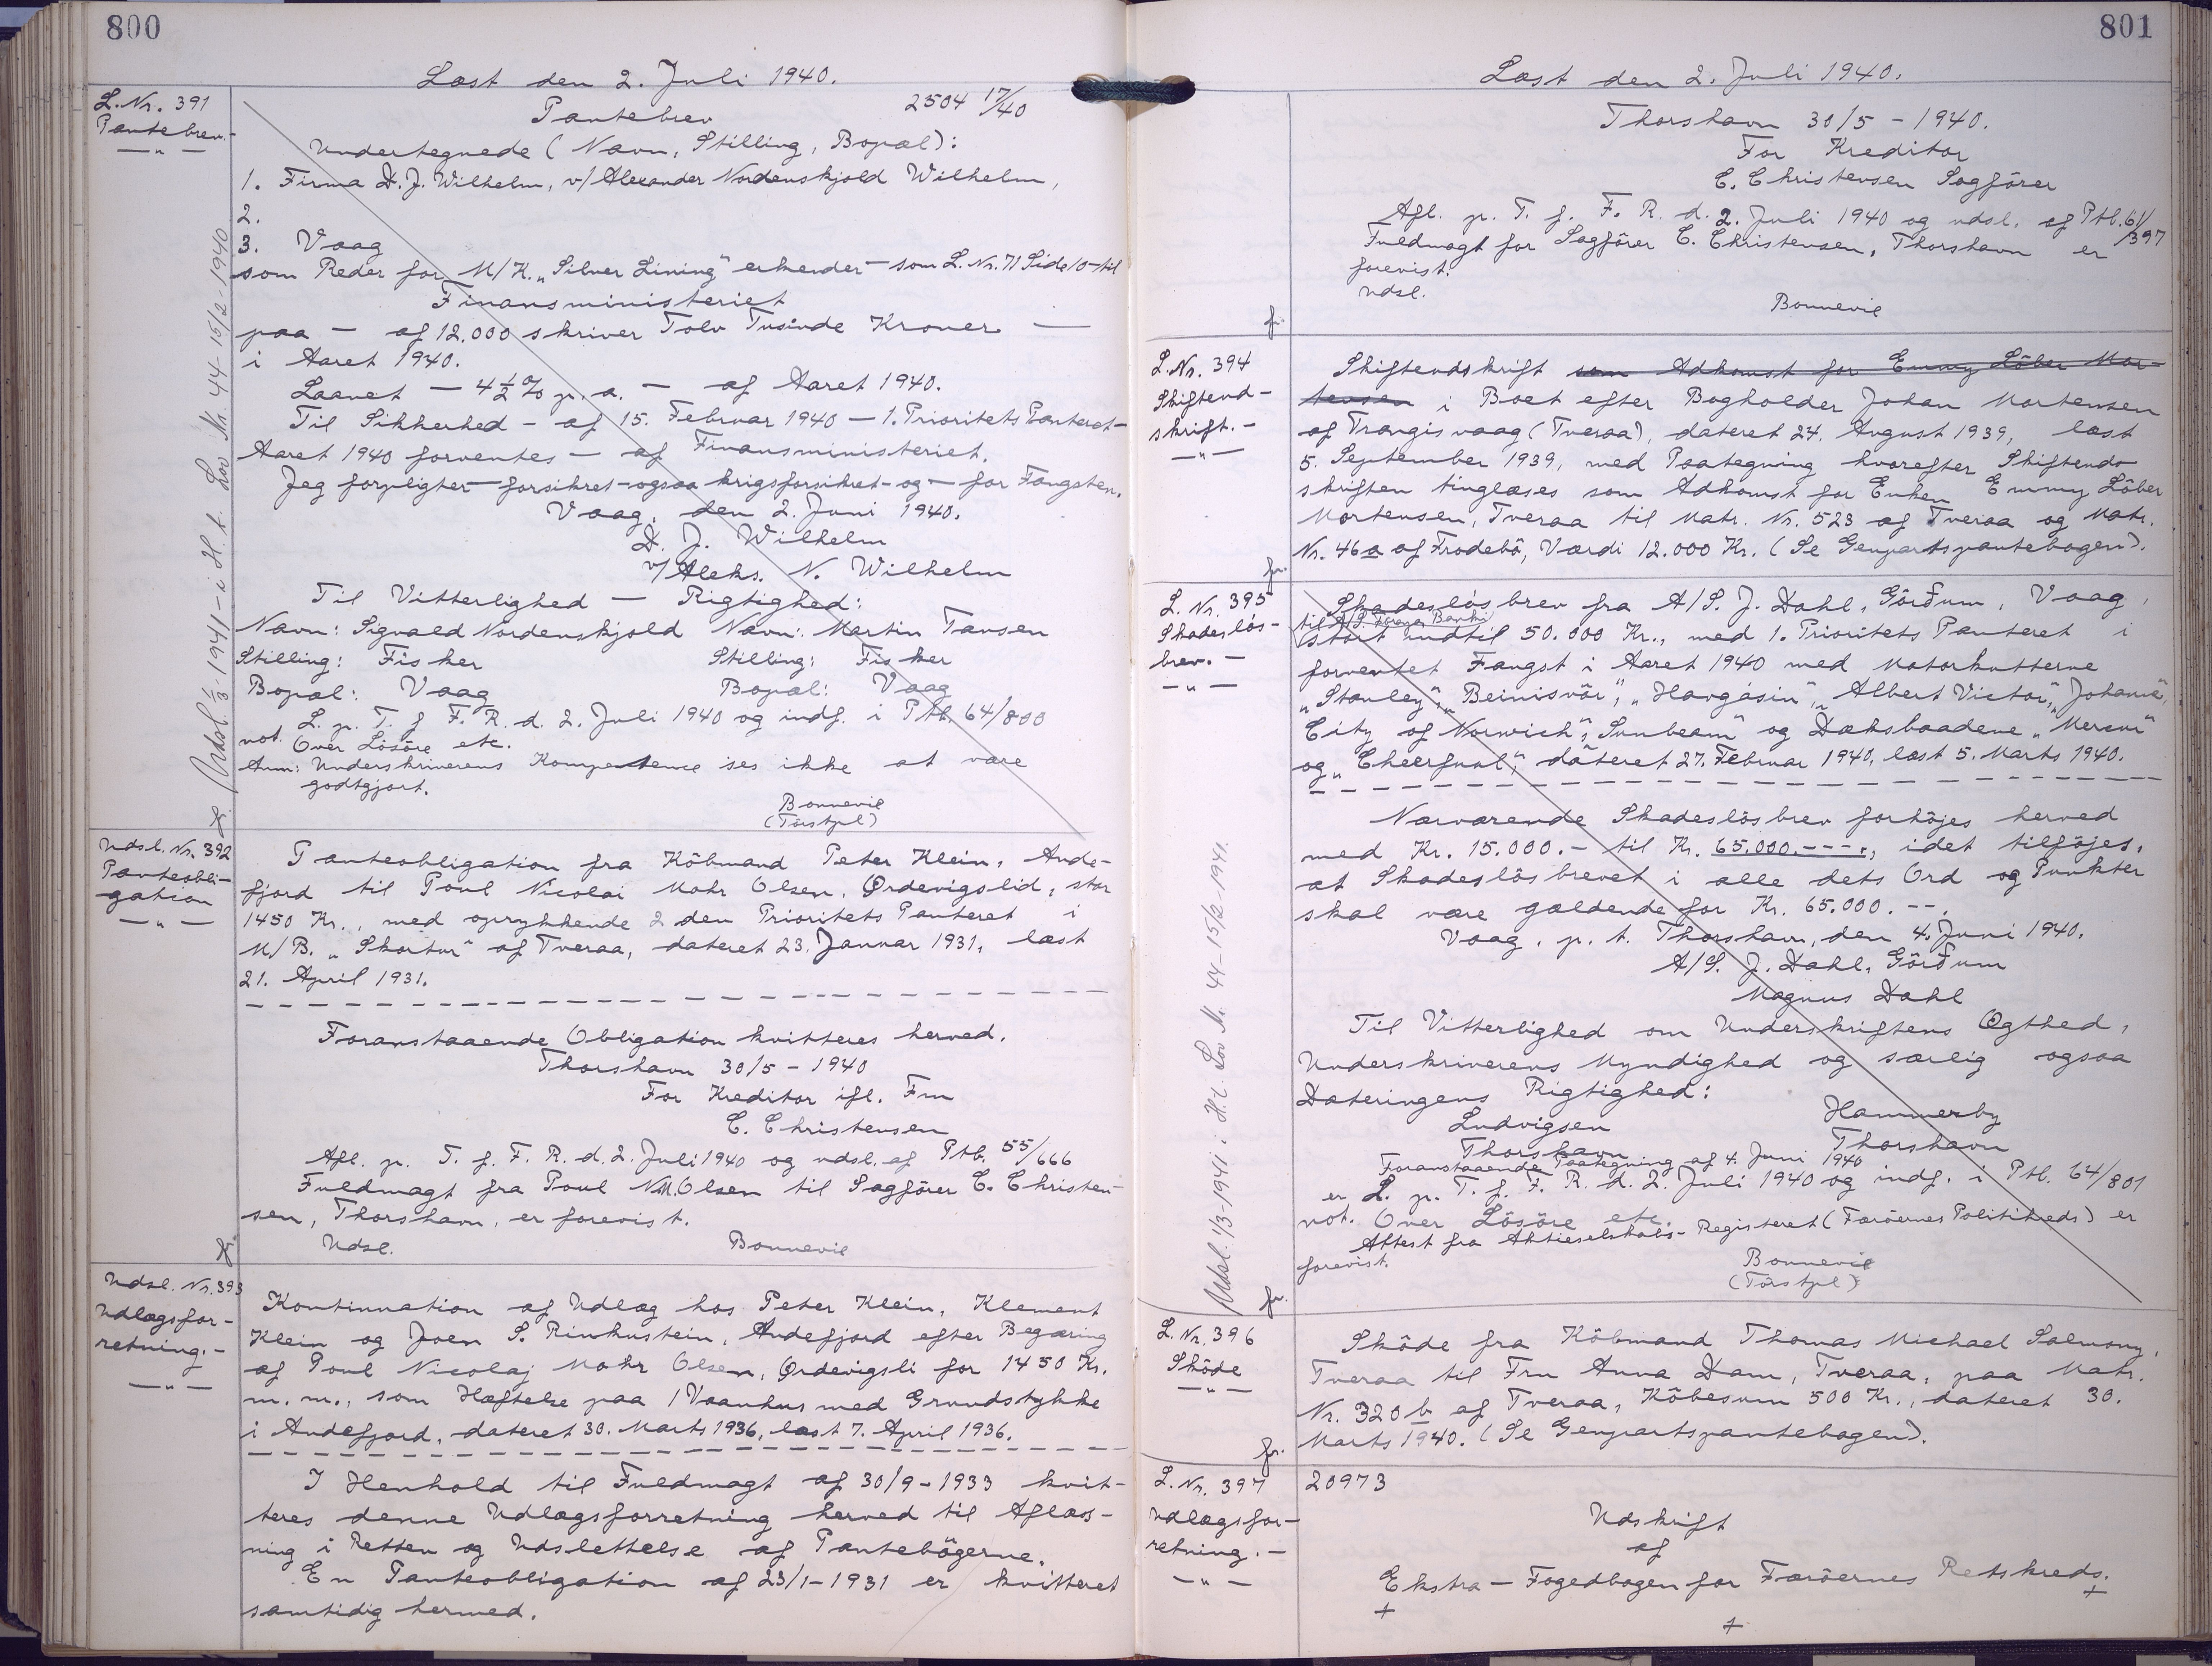 800
Læst den 2. Juli 1940.
L. Nr. 391
Pantebrev.-
— " —
Pantebrev 2504 17/40
Undertegnede (Navn, Stilling, Bopæl):
1. Firma D. J. Wilhelm, v/ Alexander Nordenskjold Wilhelm,
2.
3. Vaag
som Reder for M/K. „Silver Lining" erkender — som L. Nr. 71 Side 10 - til
Finansministeriet
paa — af 12.000 skriver Tolv Tusinde Kroner —
i Aaret 1940.
Laanet — 4½ % p. a. — af Aaret 1940.
Til Sikkerhed - af 15. Februar 1940 — 1. Prioritets Panteret -
Aaret 1940 forventes — af Finansministeriet.
Jeg forpligter — forsikret - ogsaa krigsforsikret - og — for Fangsten.
Vaag, den 2. Juni 1940.
D. J. Wilhelm
v/ Aleks. N. Wilhelm
Til Vitterlighed — Rigtighed:
Navn: Sigvald Nordenskjold Navn: Martin Tausen
Stilling: Fisker Stilling: Fisker
Bopæl: Vaag Bopæl: Vaag
L. p. T. f. F. R. d. 2. Juli 1940 og indf. i Ptb. 64/800
not. Over Lösöre etc.
Anm: Underskriverens Kompentence ises ikke at være
godtgjort.
Bonnevie
(Törstpl)
Udsl. 1/3-1941 - i H. t. Lov Nr. 44 - 15/2-1940
Udsl. Nr. 392
Panteobli-
gation
— " —
Panteobligation fra Köbmand Peter Klein, Ande-
fjord til Poul Nicolai Mohr Olsen, Ørdevigslid, stor
1450 Kr., med oprykkende 2 den Prioritets Panteret i
M/B. „Skortur" af Tveraa, dateret 23. Januar 1931, læst
21. April 1931.
Foranstaaende Obligation kvitteres herved.
Thorshavn 30/5 - 1940
For Kreditor ifl. Fm
C. Christensen
Afl. p. T. f. F. R. d. 2. Juli 1940 og udsl. af Ptb. 55/666
Fuldmagt fra Poul N.M. Olsen til Sagförer C. Christen-
sen, Thorshavn, er forevist.
Udsl. Bonnevie
Udsl. Nr. 393
Udlægsfor-
retning.-
— " —
Kontinuation af Udlæg hos Peter Klein, Klement
Klein og Joen S. Rinkustein, Andefjord efter Begæring
af Poul Nicolaj Mohr Olsen, Ørdevigsli for 1450 Kr.
m. m., som Hæftelse paa 1 Vaanhus med Grundstykke
i Andefjord, dateret 30. Marts 1936, læst 7. April 1936.
I Henhold til Fuldmagt af 30/9 - 1933 kvit-
teres denne Udlægsforretning herved til Aflæs-
ning i Retten og Udslettelse af Pantebögerne.
En Panteobligation af 23/1-1931 er kvitteret
samtidig hermed.
801
Læst den 2. Juli 1940.
Thorshavn 30/5 - 1940.
For Kreditor
C. Christensen Sagförer
Afl. p. T. f. F. R. d. 2. Juli 1940 og udsl. af Ptb. 61/397
Fuldmagt for Sagförer C. Christensen, Thorshavn er
forevist.
Udsl.
Bonnevie
L. Nr. 394
Skiftend-
skrift.-
— " —
Skiftendskrift som Adkomst for Emmy Löber Mor-
tensen i Boet efter Bogholder Johan Mortensen
af Trangisvaag (Tveraa), dateret 24. August 1939, læst
5. September 1939, med Paategning hvorefter Skiftend-
skriften tinglæses som Adkomst for Enken Emmy Löber
Mortensen, Tveraa til Matr. Nr. 523 af Tveraa og Matr.
Nr. 46a af Frodebö, Værdi 12.000 Kr. (Se Genpartspantebogen).
L. Nr. 395
Skadeslös-
brev. -
— " —
Skadeslösbrev fra A/S. J. Dahl, Görðum, Vaag,
til A/S. Föroya Banki
stort indtil 50.000 Kr., med 1. Prioritets Panteret i
forventet Fangst i Aaret 1940 med Motorkutterne
„Stanley", „Beinisvör", „Havgásin", „Albert Victor", „Johanne",
City of Norwich", „Sunbeam" og Dæksbaadene „Mercur"
og „Cheerfull", dateret 27. Februar 1940, læst 5. Marts 1940.
Nærværende Skadeslösbrev forhöjes herved
med Kr. 15.000.- til Kr. 65.000.---, idet tilföjes,
at Skadeslösbrevet i alle dets Ord og Punkter
skal være gældende for Kr. 65.000.--.
Vaag, p. t. Thorshavn, den 4. Juni 1940.
A/S. J. Dahl, Görðum
Magnus Dahl
Til Vitterlighed om Underskriftens Ægthed,
Underskriverens Myndighed og særlig ogsaa
Dateringens Rigtighed:
Ludvigsen Hammerby
Thorshavn Thorshavn
Foranstaaende Paategning af 4. Juni 1940
er L. p. T. f. F. R. d. 2. Juli 1940 og indf. i Ptb. 64/801
not. Over Lösöre etc.
Attest fra Aktieselskabs-Registeret (Færöernes Politikreds) er
forevist.
Bonnevie
(Törstpl)
Udsl. 1/3-1941 i H. t. Lov Nr. 44 - 15/2-1941.
L. Nr. 396
Sköde
— " —
Sköde fra Köbmand Thomas Michael Salmony,
Tveraa til Fru Anna Dam, Tveraa, paa Matr.
Nr. 320b af Tveraa, Köbesum 500 Kr., dateret 30.
Marts 1940. (Se Genpartspantebogen).
L. Nr. 397
Udlægsfor-
retning. -
— " —
20973
Udskrift
af
Ekstra - Fogedbogen for Færöernes Retskreds.